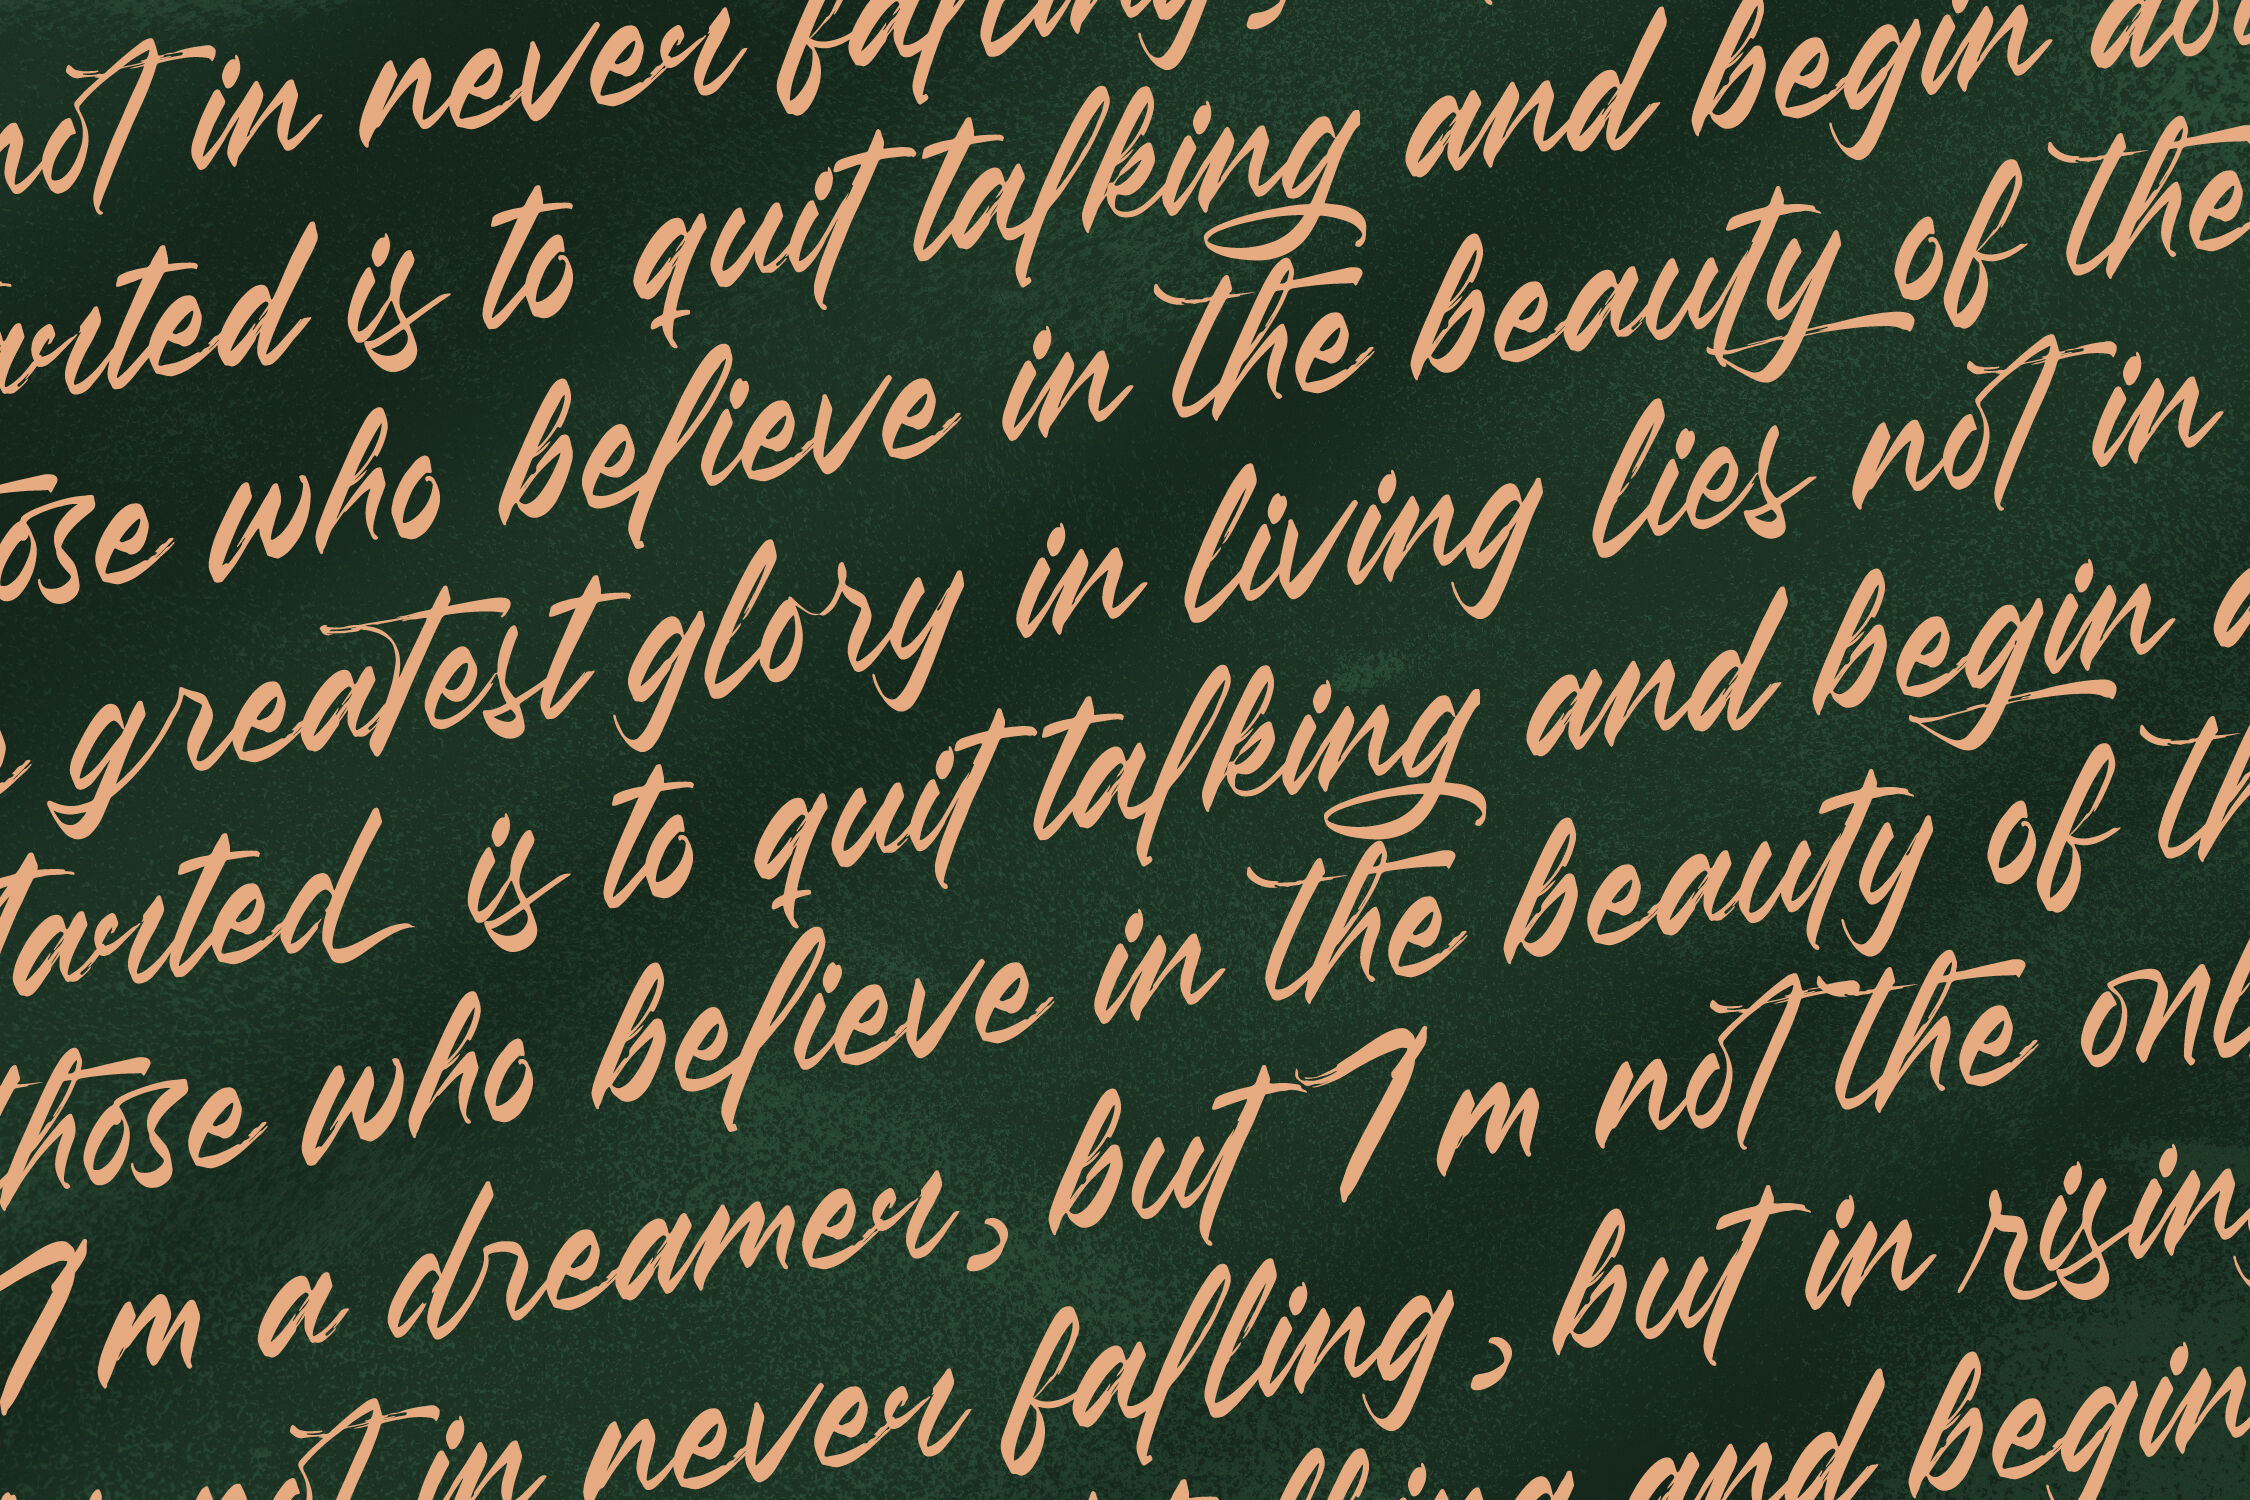 not in never falling,
arted is to quit talking and begin doi
ose who believe in the beauty of the
greatest glory in living lies not in
tarted is to quit talking and begin
those who believe in the beauty of th
I'm a dreamer, but I'm not the onl
not in never falling, but in rising
talking and begin